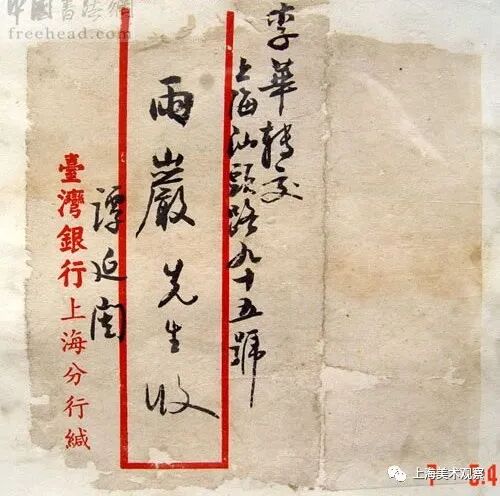 中国书法网
freehead.com
李華轉交
上海汕頭路九十五號
雨巖先生收
譚延闓
臺灣銀行上海分行緘
上海美术观察